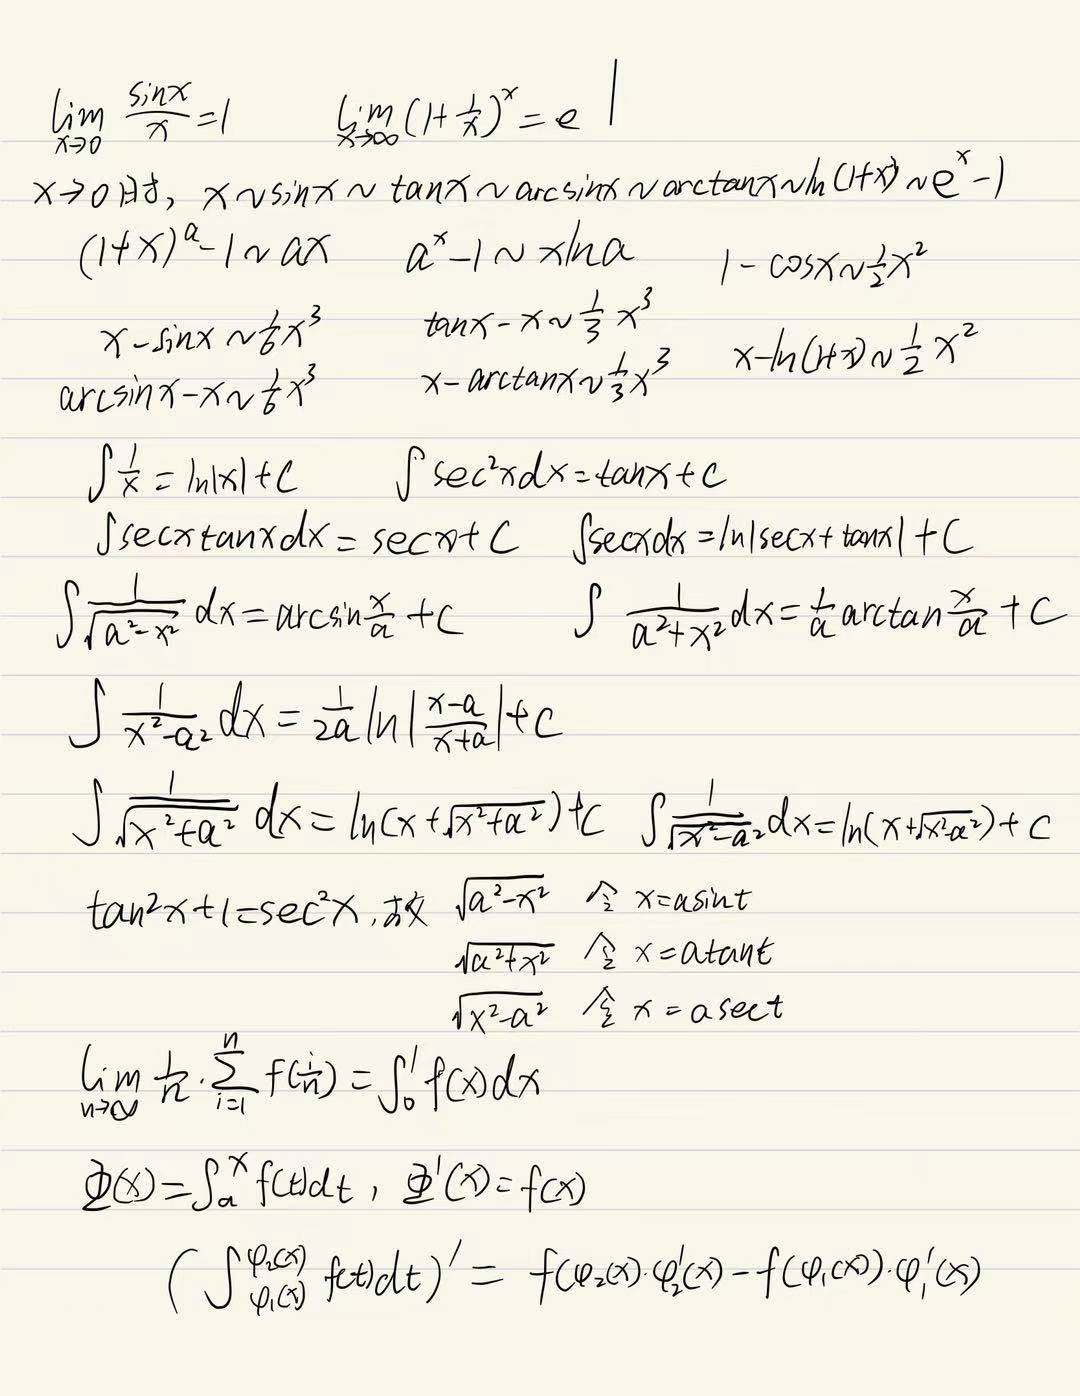 lim x→0 sinx/x = 1    lim x→∞ (1+1/x)^x = e
x→0时, x ~ sinx ~ tanx ~ arcsinx ~ arctanx ~ ln(1+x) ~ e^x-1
(1+x)^a-1 ~ ax    a^x-1 ~ xlna    1-cosx ~ 1/2 x²
x-sinx ~ 1/6 x³    tanx-x ~ 1/3 x³    x-ln(1+x) ~ 1/2 x²
arcsinx-x ~ 1/6 x³    x-arctanx ~ 1/3 x³
∫1/x = ln|x|+C    ∫sec²xdx = tanx+C
∫secxtanxdx = secx+C    ∫secxdx = ln|secx+tanx|+C
∫1/√(a²-x²) dx = arcsin x/a +C    ∫1/(a²+x²) dx = 1/a arctan x/a +C
∫1/(x²-a²) dx = 1/2a ln|(x-a)/(x+a)|+C
∫1/√(x²+a²) dx = ln(x+√(x²+a²))+C    ∫1/√(x²-a²) dx = ln(x+√(x²-a²))+C
tan²x+1=sec²x, 故 √(a²-x²) 令 x=asint
√(a²+x²) 令 x=atant
√(x²-a²) 令 x=asect
lim n→∞ 1/n · Σ_{i=1}^{n} f(i/n) = ∫₀¹ f(x)dx
Φ(x)=∫_a^x f(t)dt, Φ'(x)=f(x)
(∫_{φ₁(x)}^{φ₂(x)} f(t)dt)' = f(φ₂(x)·φ₂'(x)-f(φ₁(x))·φ₁'(x)